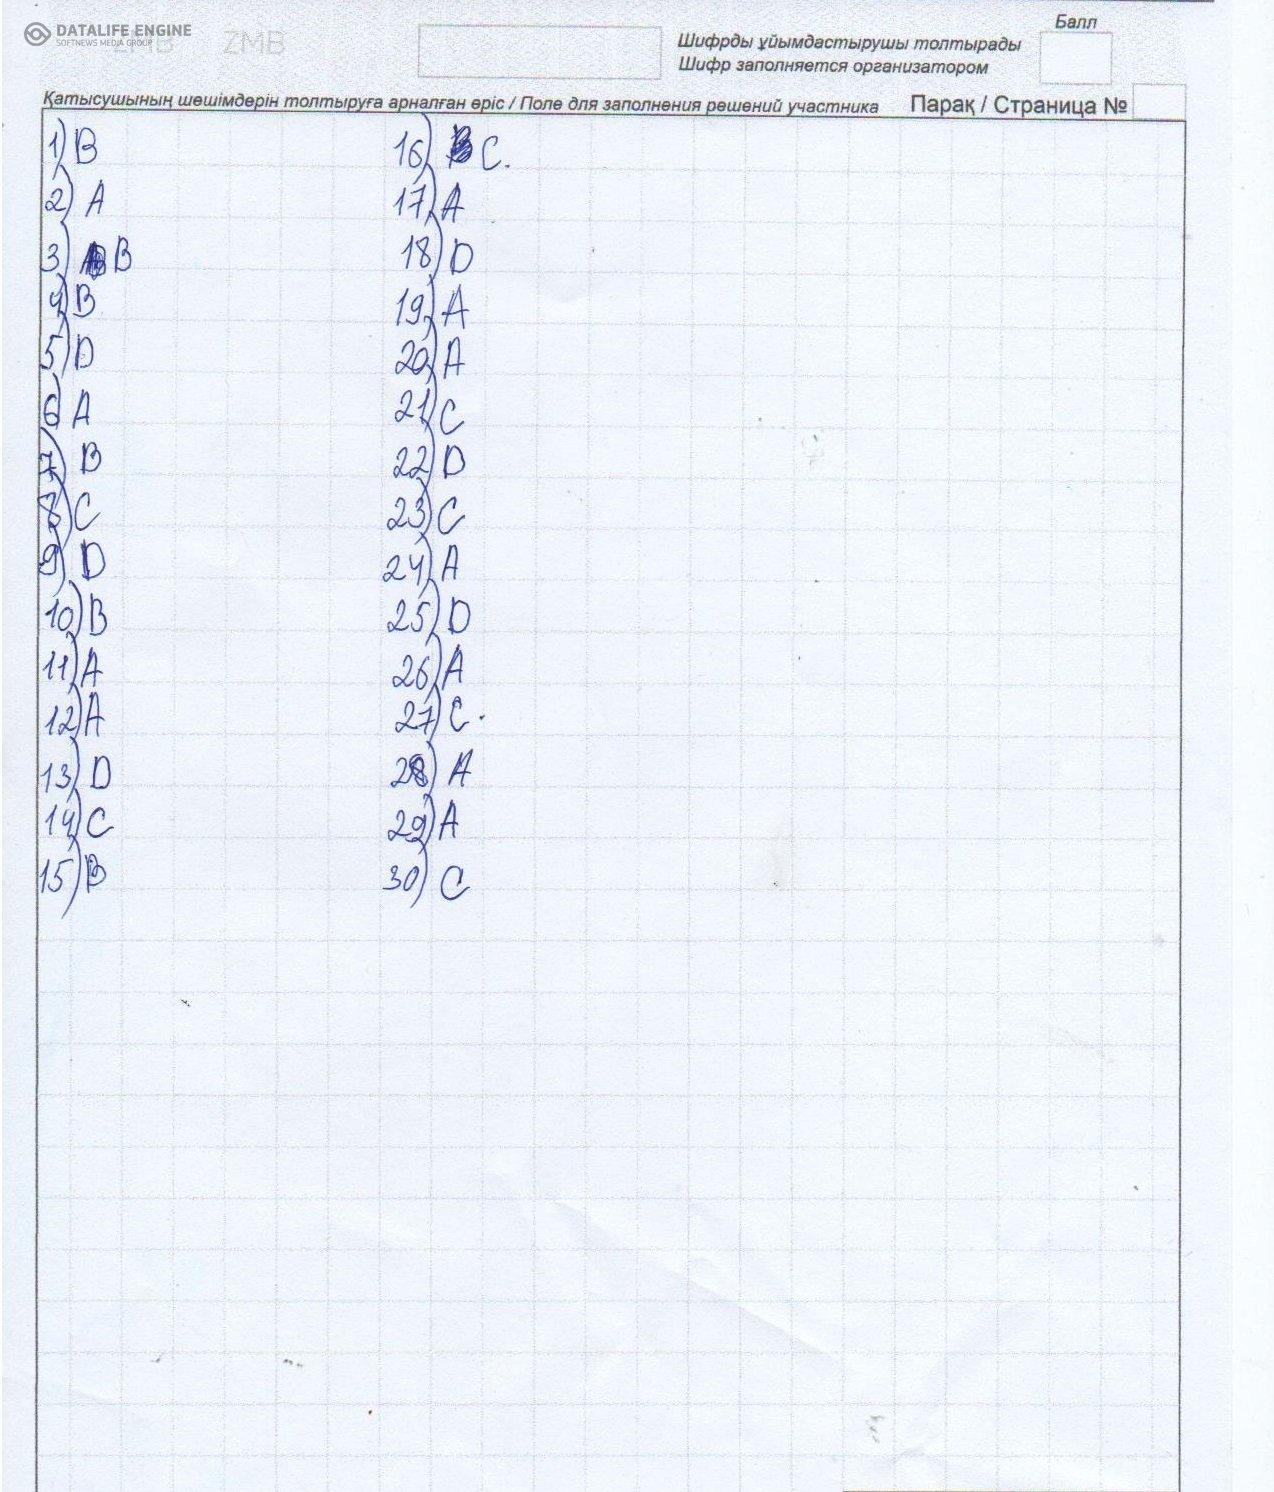 DATALIFE ENGINE
SOFTNEWS MEDIA GROUP
ZMB ZMB
Балл
Шифрды ұйымдастырушы толтырады
Шифр заполняется организатором
Қатысушының шешімдерін толтыруға арналған өріс / Поле для заполнения решений участника Парақ / Страница №
1) B
2) A
3) B
4) B
5) D
6) A
7) B
8) C
9) D
10) B
11) A
12) A
13) D
14) C
15) B
16) C.
17) A
18) D
19) A
20) A
21) C
22) D
23) C
24) A
25) D
26) A
27) C.
28) A
29) A
30) C